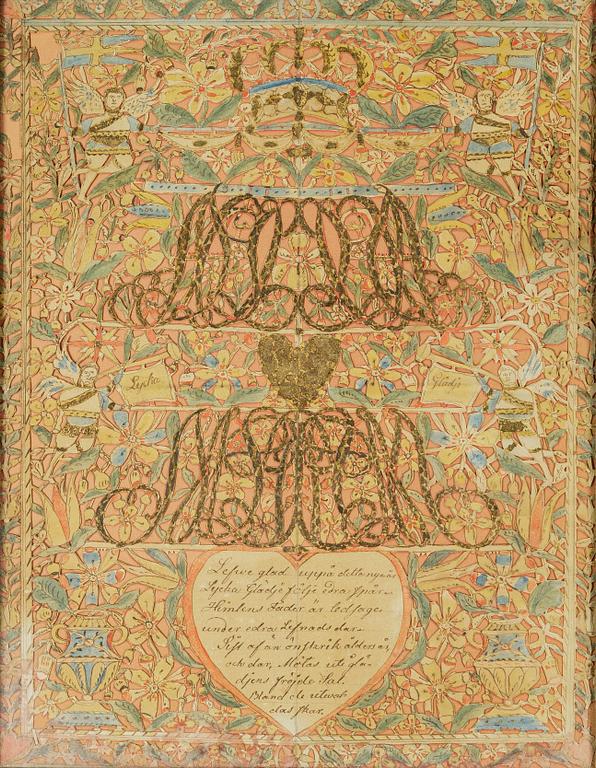 Lycka
Glädje
Lefwe glad uppå detta nya år
Lycka Glädje följe edra spår
Himlens Fader är ledsagare
under edra Lefnads dar
Sist af än önskerik ålders år,
och dar, Mötas uti glä-
djens fröjde Sal.
Bland de utwal
das skar.